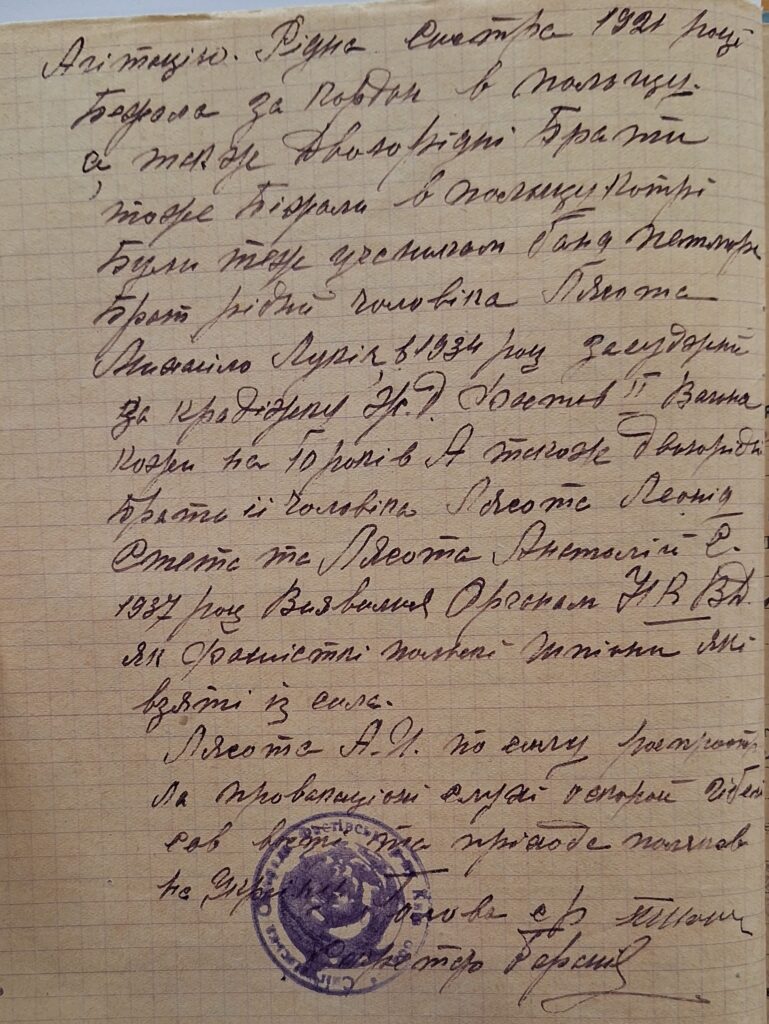 Агітацію. Рідна сестра 1921 році
Бежала за кордон в польщу.
а также двоюрідні Брати
тоже Біжали в польщу котрі
Були теж учесникам банд петлюри
Брат рідний чоловіка Лясота
Михайло Лукік, в 1934 роц засуджений
за крадіжку Ж.Д. Фастов II Вагона
кожи на 10 років А також двоюрідні
Брати її чоловіка Лясота Леонід
та Лясота Анатолій С.
1937 роц Органам НКВД.
як фашисткі польскі шпіони які
взяті із села.
Лясота А.И. по селу роспрост
ла провакаціоні слухі о скорой гибелі
сов власти та приходе поляков
на Україну
Голова с/р
Секретар